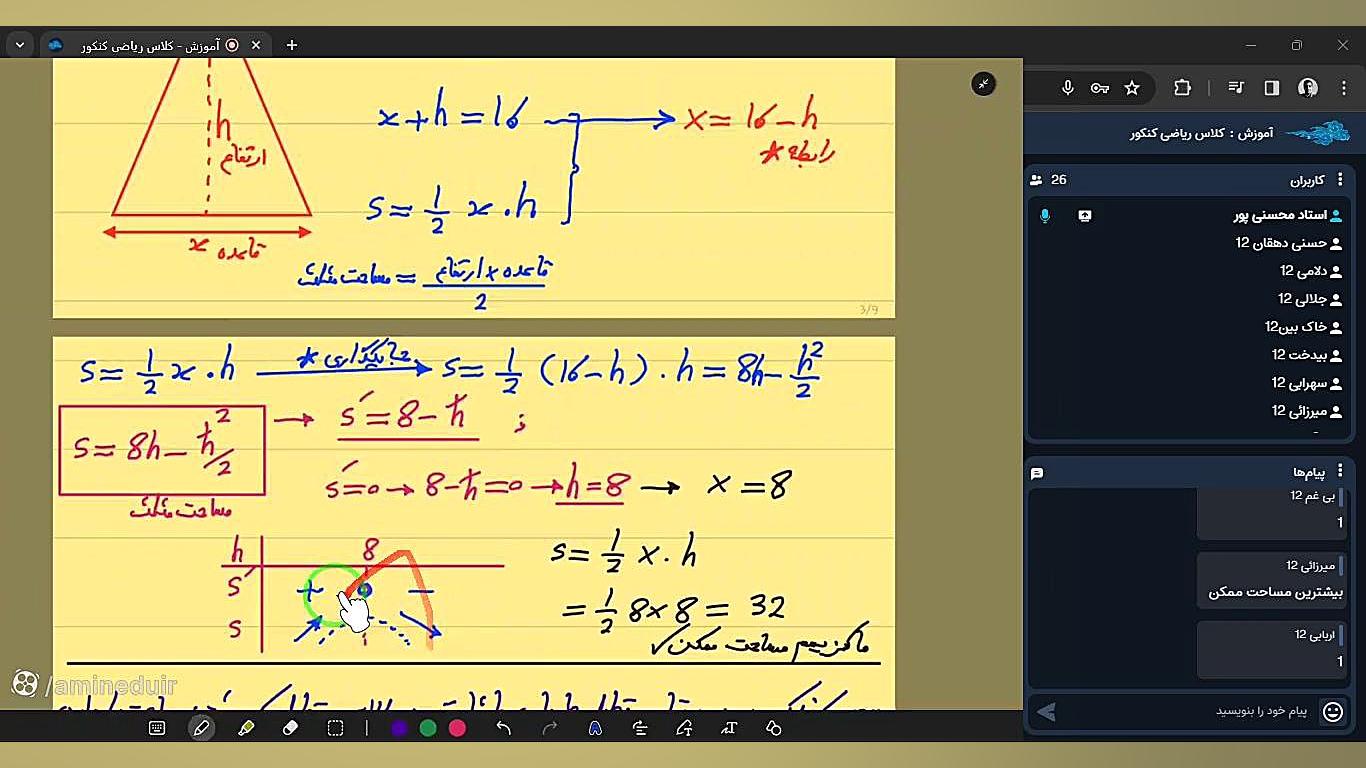 آموزش - کلاس ریاضی کنکور
آموزش : کلاس ریاضی کنکور
h
ارتفاع
x قاعده
x+h=16 → x=16-h
رابطه *
s=1/2 x.h
مساحت مثلث = قاعده × ارتفاع / 2
3/9
s=1/2 x.h → * جایگذاری s=1/2 (16-h).h=8h-h²/2
s=8h-h²/2 → s'=8-h ;
مساحت مثلث
s'=0 → 8-h=0 → h=8 → x=8
h 8
s' + 0 -
s
s=1/2 x.h
=1/2 8×8=32
ماکزیمم مساحت ممکن ✓
/amineduir
کاربران
26
استاد محسنی پور
حسنی دهقان 12
دلامی 12
جلالی 12
خاک بین12
بیدخت 12
سهرابی 12
میرزائی 12
پیام‌ها
بی غم 12
1
میرزائی 12
بیشترین مساحت ممکن
اربابی 12
1
پیام خود را بنویسید